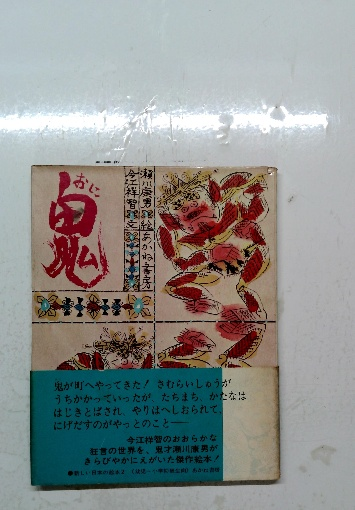 おに
鬼
瀬川康男 絵 あかね書房
今江祥智 文
鬼が町へやってきた！ さむらいしゅうが
うちかかっていったが、たちまち、かたなは
はじきとばされ、やりはへしおられて、
にげだすのがやっとのこと――
今江祥智のおおらかな
狂言の世界を、鬼才瀬川康男が
きらびやかにえがいた傑作絵本！